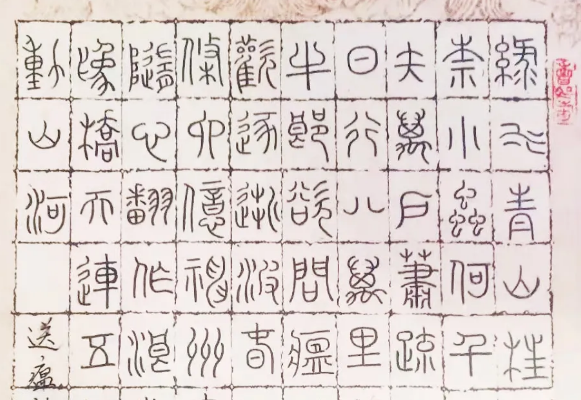 綠水青山枉
柰小蟲何千
矢萬戶蕭疏
日行八萬里
牛郎欲問瘟
歡逐逝波春
條六億神州
隨心翻作浪
為橋天連五
動山河
送瘟